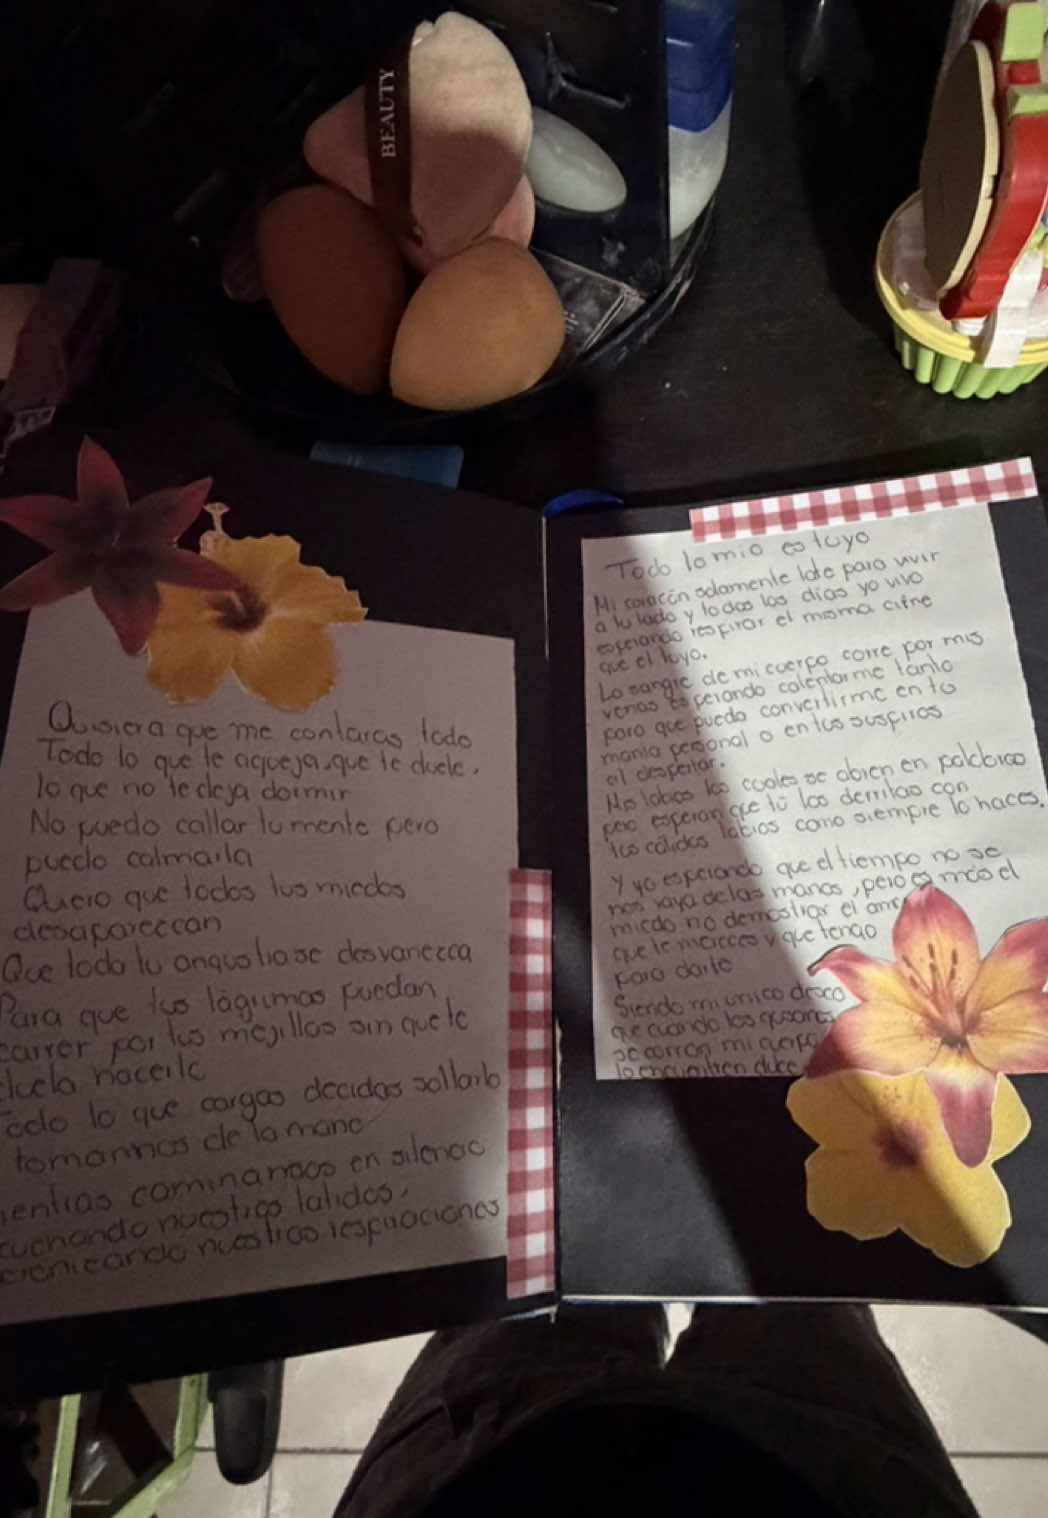 BEAUTY
Quisiera que me contaras todo
Todo lo que te aqueja, que te duele,
lo que no te deja dormir
No puedo callar tu mente pero
puedo calmarla
Quiero que todos tus miedos
desaparezcan
Que toda tu angustia se desvanezca
Para que tus lágrimas puedan
correr por tus mejillas sin que te
duela hacerlo
Todo lo que cargas decidas soltarlo
tomarnos de la mano
mientras caminamos en silencio
nuestros latidos,
nuestras respiraciones
Todo lo mio es tuyo
Mi corazón solamente late para vivir
a tu lado y todos los dias yo vivo
esperando respirar el mismo aire
que el tuyo.
La sangre de mi cuerpo corre por mis
venas esperando calentarme tanto
para que pueda convertirme en tu
manta personal o en tus suspiros
al despertar.
Mis labios los cuales se abren en palabras
pero esperan que tú los derritas con
tus cálidos labios como siempre lo haces.
y yo esperando que el tiempo no se
nos vaya de las manos, pero es más el
miedo no demostrar el amor
que te mereces y que tengo
para darte
Siendo mi unico deseo
que cuando los gusanos
se coman mi cuerpo
lo encuentren dulce